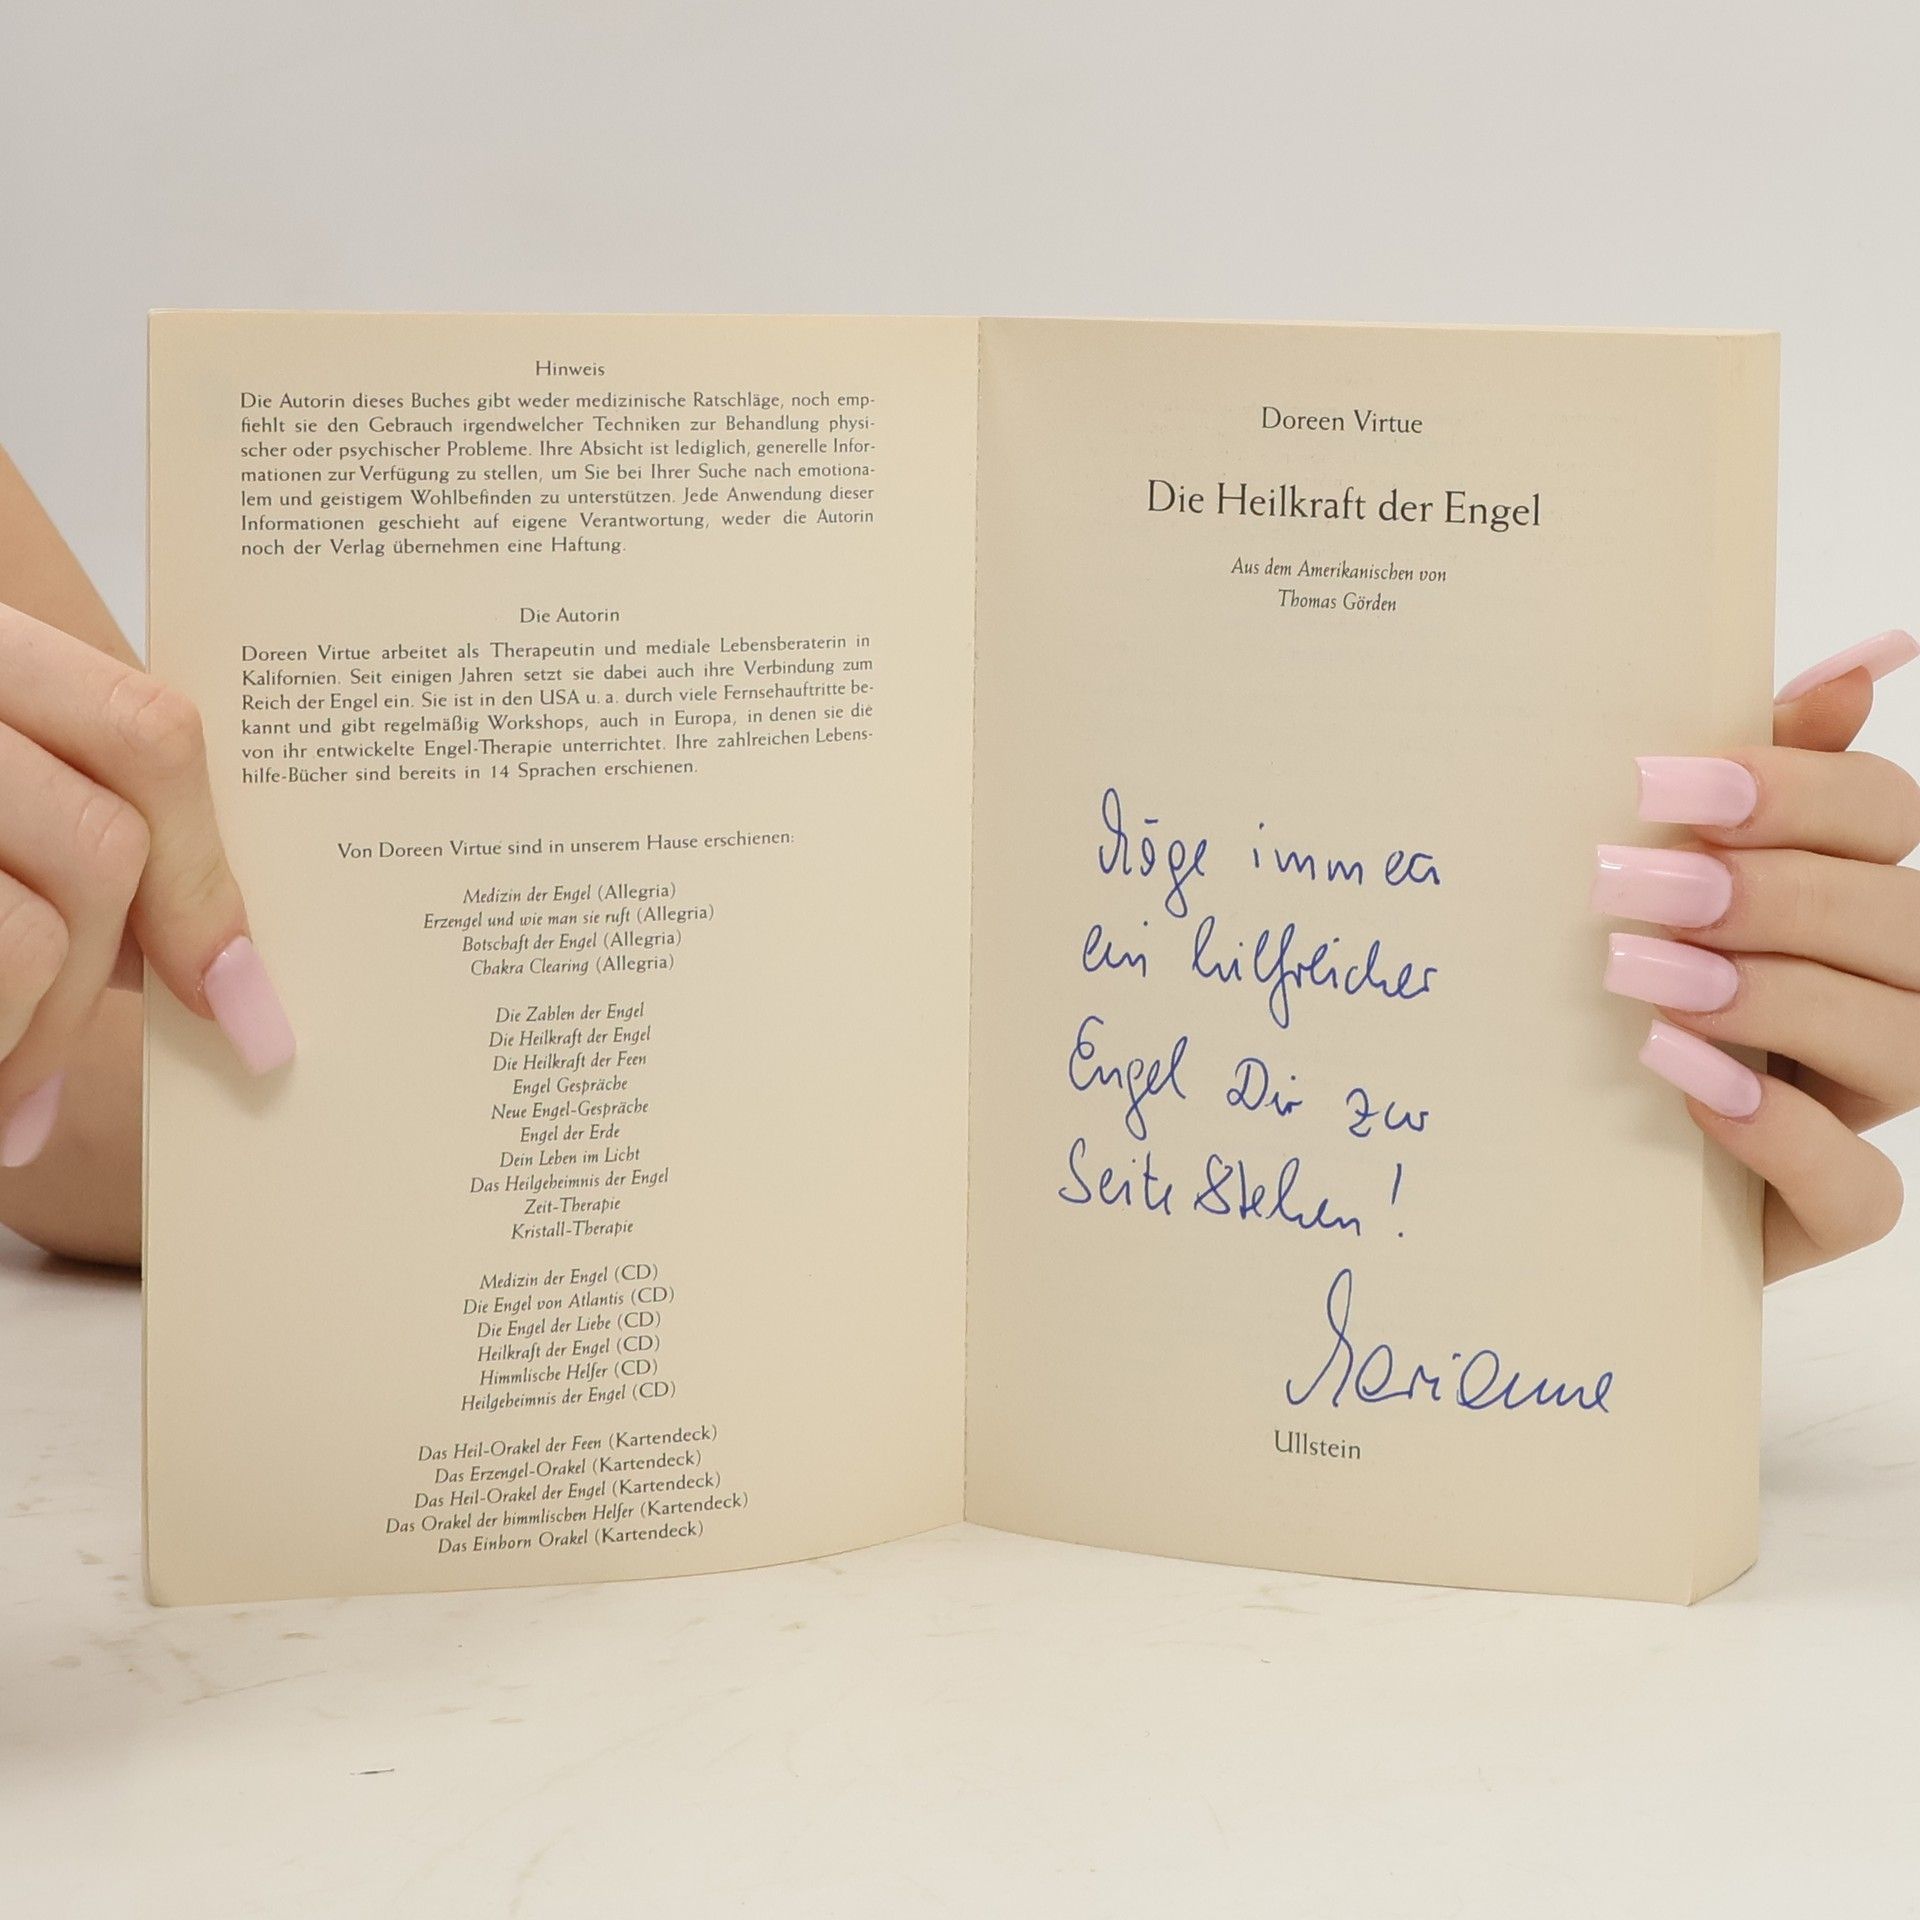 Hinweis
Die Autorin dieses Buches gibt weder medizinische Ratschläge, noch emp-
fiehlt sie den Gebrauch irgendwelcher Techniken zur Behandlung physi-
scher oder psychischer Probleme. Ihre Absicht ist lediglich, generelle Infor-
mationen zur Verfügung zu stellen, um Sie bei Ihrer Suche nach emotiona-
lem und geistigem Wohlbefinden zu unterstützen. Jede Anwendung dieser
Informationen geschieht auf eigene Verantwortung, weder die Autorin
noch der Verlag übernehmen eine Haftung.
Die Autorin
Doreen Virtue arbeitet als Therapeutin und mediale Lebensberaterin in
Kalifornien. Seit einigen Jahren setzt sie dabei auch ihre Verbindung zum
Reich der Engel ein. Sie ist in den USA u. a. durch viele Fernsehauftritte be-
kannt und gibt regelmäßig Workshops, auch in Europa, in denen sie die
von ihr entwickelte Engel-Therapie unterrichtet. Ihre zahlreichen Lebens-
hilfe-Bücher sind bereits in 14 Sprachen erschienen.
Von Doreen Virtue sind in unserem Hause erschienen:
Medizin der Engel (Allegria)
Erzengel und wie man sie ruft (Allegria)
Botschaft der Engel (Allegria)
Chakra Clearing (Allegria)
Die Zahlen der Engel
Die Heilkraft der Engel
Die Heilkraft der Feen
Engel Gespräche
Neue Engel-Gespräche
Engel der Erde
Dein Leben im Licht
Das Heilgeheimnis der Engel
Zeit-Therapie
Kristall-Therapie
Medizin der Engel (CD)
Die Engel von Atlantis (CD)
Die Engel der Liebe (CD)
Heilkraft der Engel (CD)
Himmlische Helfer (CD)
Heilgeheimnis der Engel (CD)
Das Heil-Orakel der Feen (Kartendeck)
Das Erzengel-Orakel (Kartendeck)
Das Heil-Orakel der Engel (Kartendeck)
Das Orakel der himmlischen Helfer (Kartendeck)
Das Einhorn Orakel (Kartendeck)
Doreen Virtue
Die Heilkraft der Engel
Aus dem Amerikanischen von
Thomas Görden
Möge immer
ein hilfreicher
Engel Dir zur
Seite stehen!
Marianne
Ullstein